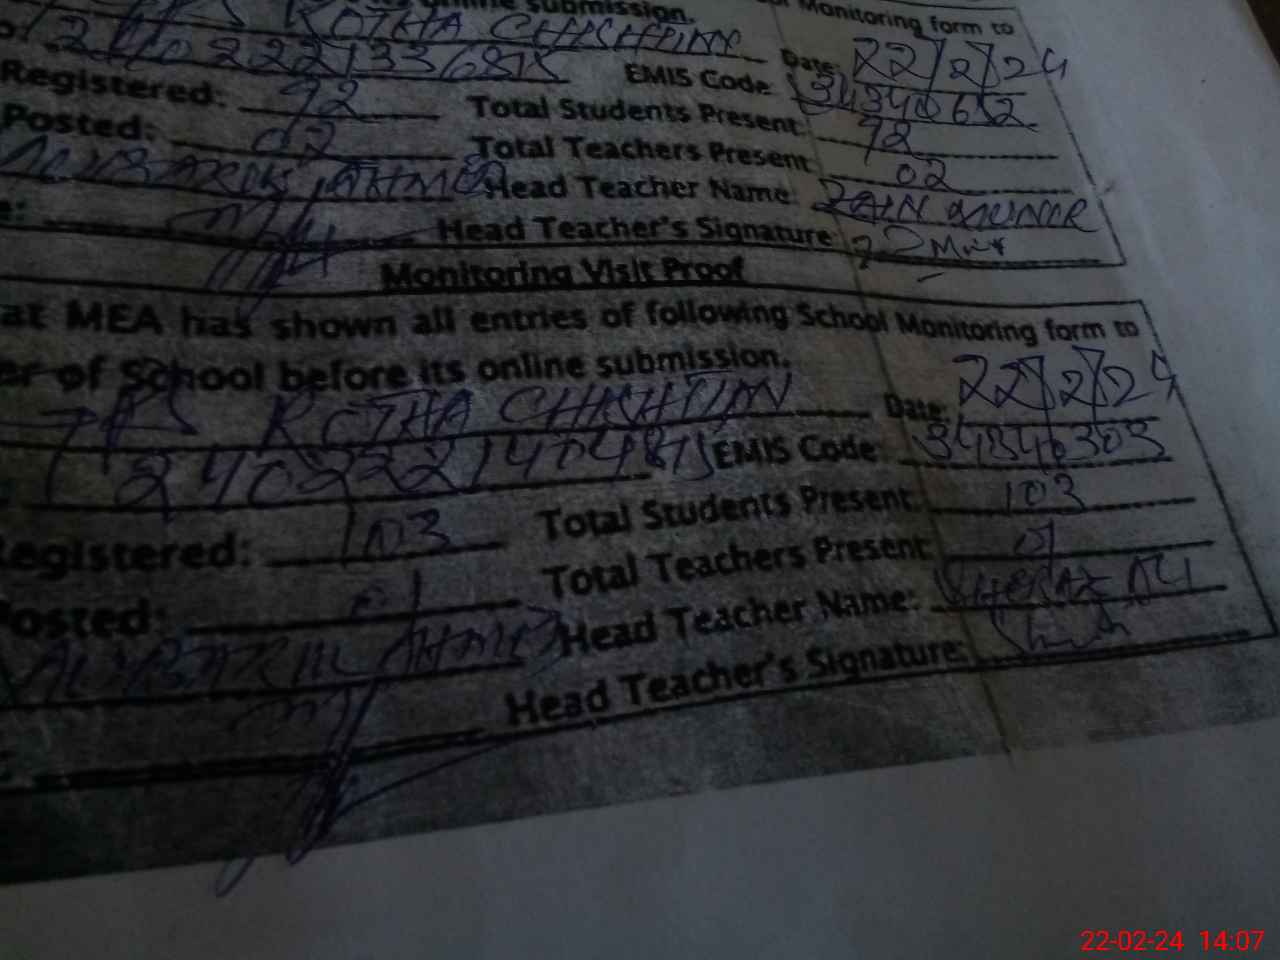 online submission. Monitoring form to
KOTHA CHISHTIAN Date: 22/2/24
EMIS Code: 34340652
Registered: 92 Total Students Present: 92
Posted: 02 Total Teachers Present: 02
AHMED Head Teacher Name: ZAIN MUNIR
Head Teacher's Signature:
Monitoring Visit Proof
at MEA has shown all entries of following School Monitoring form to
er of School before its online submission.
PS KOTHA CHISHTIAN Date: 22/2/24
EMIS Code: 34340303
egistered: 103 Total Students Present: 103
osted: 01 Total Teachers Present: 01
AHMED Head Teacher Name: SHERAZ ALI
Head Teacher's Signature:
22-02-24 14:07